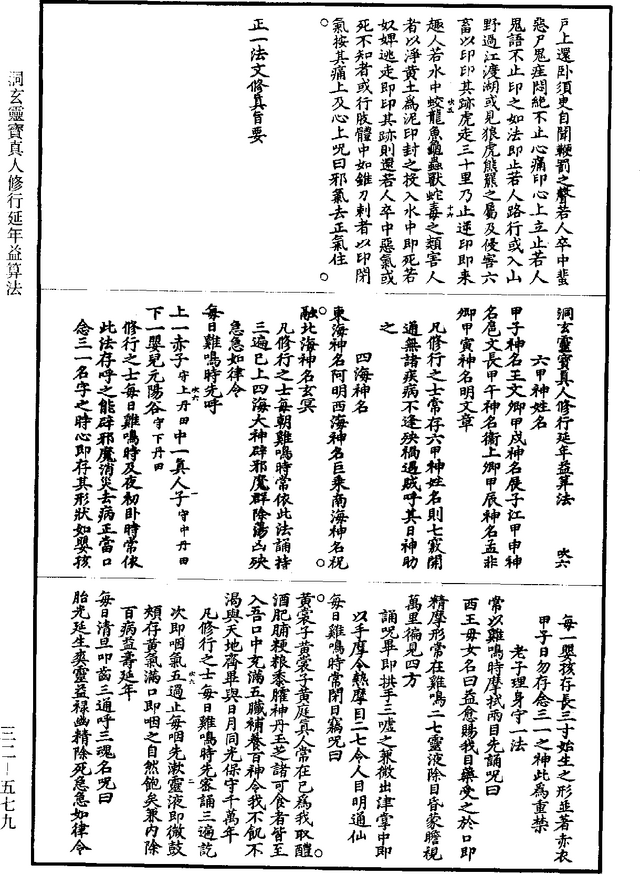 洞玄靈寶真人修行延年益算法
三二—五七九
戶上還臥須臾自聞鞭罰之聲若人卒中蜚
惡尸鬼疰悶絕不止心痛印心上立止若人
鬼語不止印之如法即止若人路行或入山
野過江渡湖或見狼虎熊羆之屬及侵害六
畜以印印其跡虎走三十里乃止逆印即來
趣人若水中蛟龍魚龜蟲獸蛇毒之類害人
者以淨黃土為泥印封之投入水中即死若
奴婢逃走即印其跡則還若人卒中惡氣或
死不知者或行肢體中如錐刀刺者以印閉
氣按其痛上及心上呪曰邪氣去正氣住
正一法文修真旨要
洞玄靈寶真人修行延年益算法 吹六
六甲神姓名
甲子神名王文卿甲戌神名展子江甲申神
名扈文長甲午神名衞上卿甲辰神名孟非
卿甲寅神名明文章
凡修行之士常存六甲神姓名則七竅開
通無諸疾病不逢殃禍遇賊呼其日神助
之
四海神名
東海神名阿明西海神名巨乘南海神名祝
融北海神名玄冥
凡修行之士每朝雞鳴時常依此法誦持
三遍已上四海大神辟邪魔群除蕩凶殃
急急如律令
每日雞鳴時先呼
上一赤子守上丹田中一真人子守中丹田
下一嬰兒元陽谷守下丹田
修行之士每日雞鳴時及夜初卧時常依
此法存呼之能辟邪魔消災去病正當口
念三一名字之時心即存其形狀如嬰孩
每一嬰孩存長三寸始生之形並著赤衣
甲子日勿存念三一之神此為重禁
老子理身守一法
常以雞鳴時摩拭兩目先誦呪曰
西王母女名曰益愈賜我目藥受之於口即
精摩形常在雞鳴二七靈液除目昏蒙瞻視
萬里徧見四方
誦呪畢即拱手三噓之兼微出津掌中即
以手摩令熱摩目二七令人目明通仙
每日雞鳴時常閉目竊呪曰
黃裳子黃裳子黃庭真人常在己為我取醴
酒肥脯粳粮黍臛神丹玉芝諸可食者皆至
入吾口中充滿五臟補養百神令我不飢不
渴與天地齊畢與日月同光保守千萬年
凡修行之士每日雞鳴時先密誦三遍訖
次即咽氣五過止每咽先漱靈液即微鼓
頰存黃氣滿口即咽之自然飽矣兼內除
百病益壽延年
每日清旦叩齒三通呼三魂名呪曰
胎光延生爽靈益祿幽精除死急急如律令